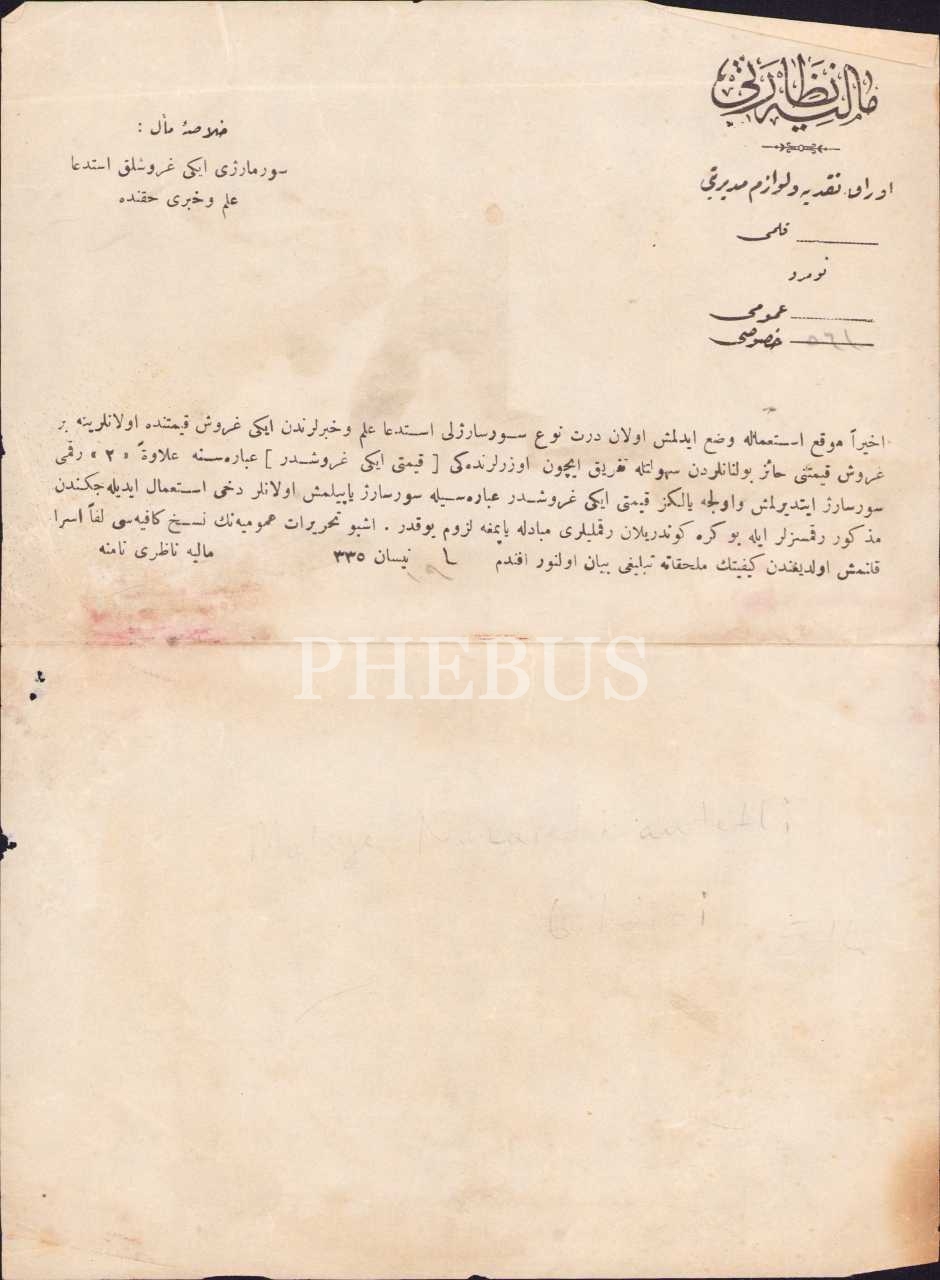 مالیه نظارتی
اوراق نقدیه ولوازم مدیریتی
قلمی
نومرو
عمومی
خصوصی
خلاصهٔ مآل :
سورشارژی ایکی غروشلق استدعا
علم وخبری حقنده
اخیراً موقع استعماله وضع ایدلمش اولان درت نوع سورسارژلی استدعا علم وخبرلرندن ایکی غروش قیمتنده اولانلرینه بر
غروش قیمتنی حائز بولنانلردن سهولتله تفریق ایچون اوزرلرنده‌کی [ قیمتی ایکی غروشدر ] عباره‌سنه علاوةً «۲» رقمی
سورسارژ ایتدیرلمش واولجه یالکز قیمتی ایکی غروشدر عباره‌سیله سورسارژ یاپیلمش اولانلر دخی استعمال ایدیله‌جکندن
مذکور رقمسزلر ایله بو کره کوندریلان رقملیلری مبادله یاپمغه لزوم یوقدر . اشبو تحریرات عمومیه‌نك نسخ کافیه‌سی لفاً اسرا
قلنمش اولدیغندن کیفیتك ملحقاته تبلیغی بیان اولنور افندم نیسان ۳۳۵ مالیه ناظری نامنه
PHEBUS